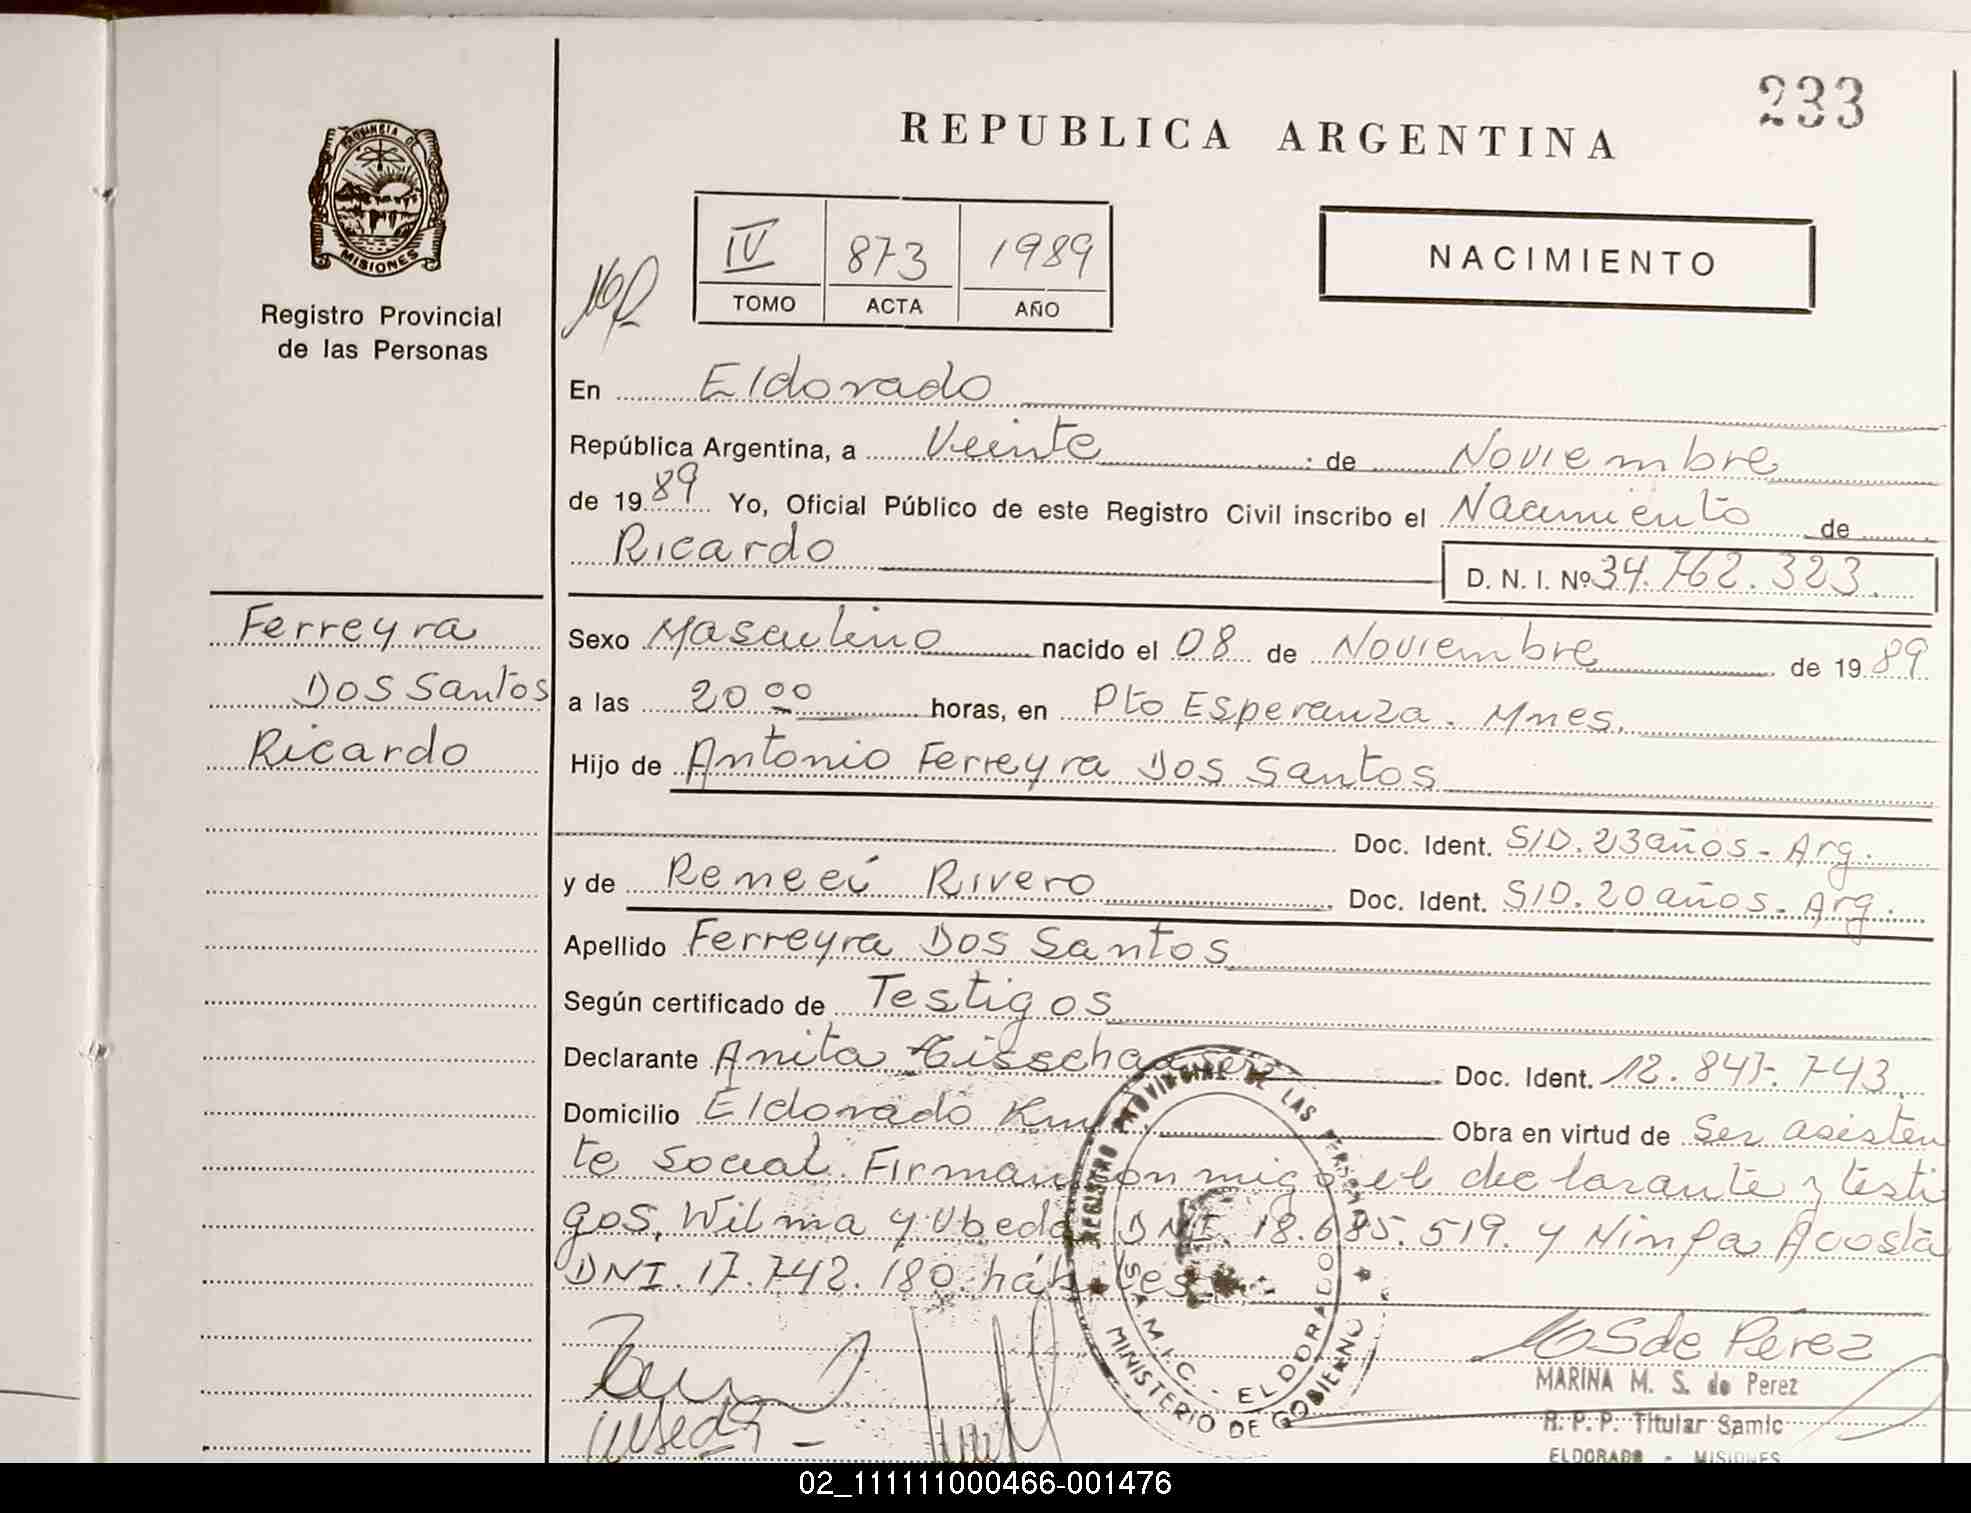 233
REPUBLICA ARGENTINA
PROVINCIA D
MISIONES
Registro Provincial
de las Personas
IV 873 1989
TOMO ACTA AÑO
NACIMIENTO
En Eldorado
República Argentina, a Veinte de Noviembre
de 1989 Yo, Oficial Público de este Registro Civil inscribo el Nacimiento de
Ricardo D. N. I. Nº 34.762.323.
Ferreyra
Dos Santos
Ricardo
Sexo Masculino nacido el 08 de Noviembre de 1989
a las 20 00 horas, en Pto Esperanza. Mnes.
Hijo de Antonio Ferreyra Dos Santos
Doc. Ident. S/D. 23 años - Arg.
y de Remeei Rivero Doc. Ident. S/D. 20 años - Arg.
Apellido Ferreyra Dos Santos
Según certificado de Testigos
Declarante Anita Doc. Ident. 12.847.743
Domicilio Eldorado Km Obra en virtud de Ser asisten
te Social. Firman conmigo el declarante y testi
gos, Wilma y Ubeda DNI. 18.685.519. y Ninfa Acosta
DNI. 17.742.180 hábiles
REGISTRO PROVINCIAL DE LAS PERSONAS
S.A.M.I.C. - ELDORADO
MINISTERIO DE GOBIERNO
MSde Perez
MARINA M. S. de Perez
R. P. P. Titular Samic
ELDORADO - MISIONES
Ubeda
02_111111000466-001476